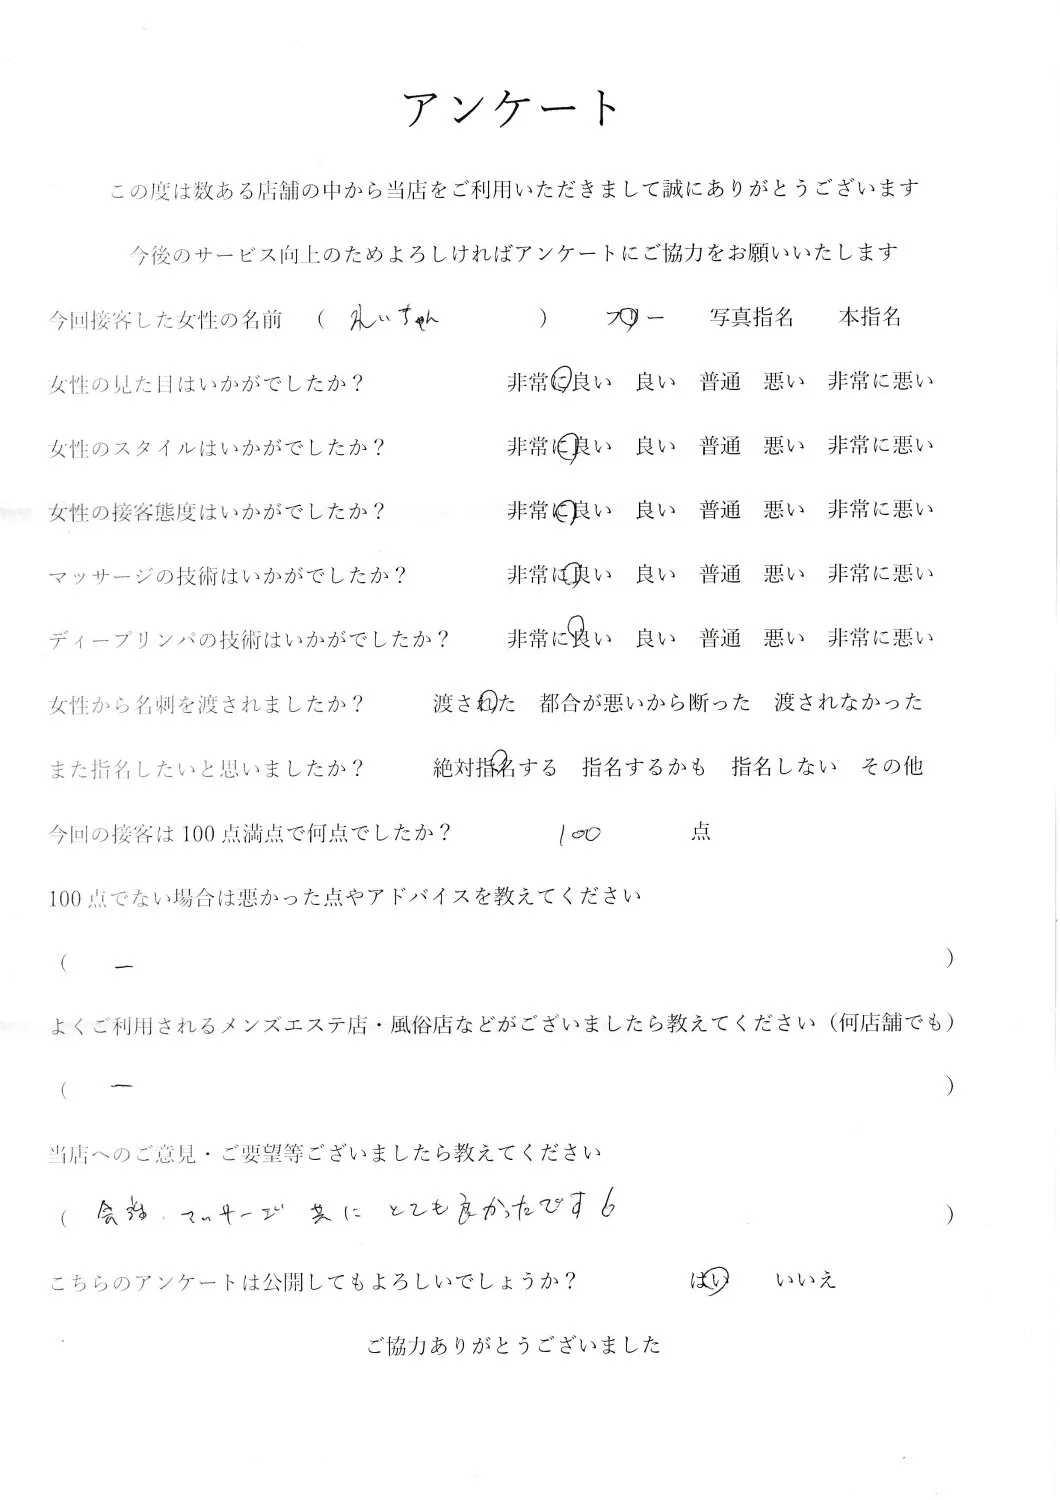 アンケート
この度は数ある店舗の中から当店をご利用いただきまして誠にありがとうございます
今後のサービス向上のためよろしければアンケートにご協力をお願いいたします
今回接客した女性の名前 （ れいちゃん ） フリー 写真指名 本指名
女性の見た目はいかがでしたか？ 非常に良い 良い 普通 悪い 非常に悪い
女性のスタイルはいかがでしたか？ 非常に良い 良い 普通 悪い 非常に悪い
女性の接客態度はいかがでしたか？ 非常に良い 良い 普通 悪い 非常に悪い
マッサージの技術はいかがでしたか？ 非常に良い 良い 普通 悪い 非常に悪い
ディープリンパの技術はいかがでしたか？ 非常に良い 良い 普通 悪い 非常に悪い
女性から名刺を渡されましたか？ 渡された 都合が悪いから断った 渡されなかった
また指名したいと思いましたか？ 絶対指名する 指名するかも 指名しない その他
今回の接客は 100 点満点で何点でしたか？ 100 点
100 点でない場合は悪かった点やアドバイスを教えてください
（ ー ）
よくご利用されるメンズエステ店・風俗店などがございましたら教えてください（何店舗でも）
（ ー ）
当店へのご意見・ご要望等ございましたら教えてください
（ 会話、マッサージ 共に とても良かったです ）
こちらのアンケートは公開してもよろしいでしょうか？ はい いいえ
ご協力ありがとうございました